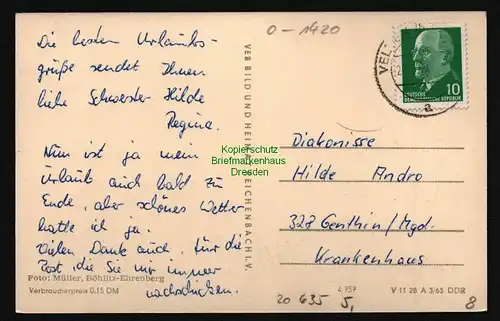 0-1420
Die besten Urlaubs-
grüße sendet Ihnen
liebe Schwester Hilde
Regina.
Nun ist ja mein
Urlaub auch bald zu
Ende, aber schönes Wetter
hatte ich ja.
Vielen Dank auch, für die
Post, die Sie mir immer
nachschicken.
Foto: Müller, Böhlitz-Ehrenberg
Verbraucherpreis 0,15 DM
VEB BILD UND HEIMAT REICHENBACH I. V.
Kopierschutz
Briefmarkenhaus
Dresden
VEL
a
DEUTSCHE
DEMOKRATISCHE REPUBLIK
10
Diakonisse
Hilde Andro
328 Genthin/Mgd.
Krankenhaus
20 635 5,
4,957
V 11 28 A 3/63 DDR
8